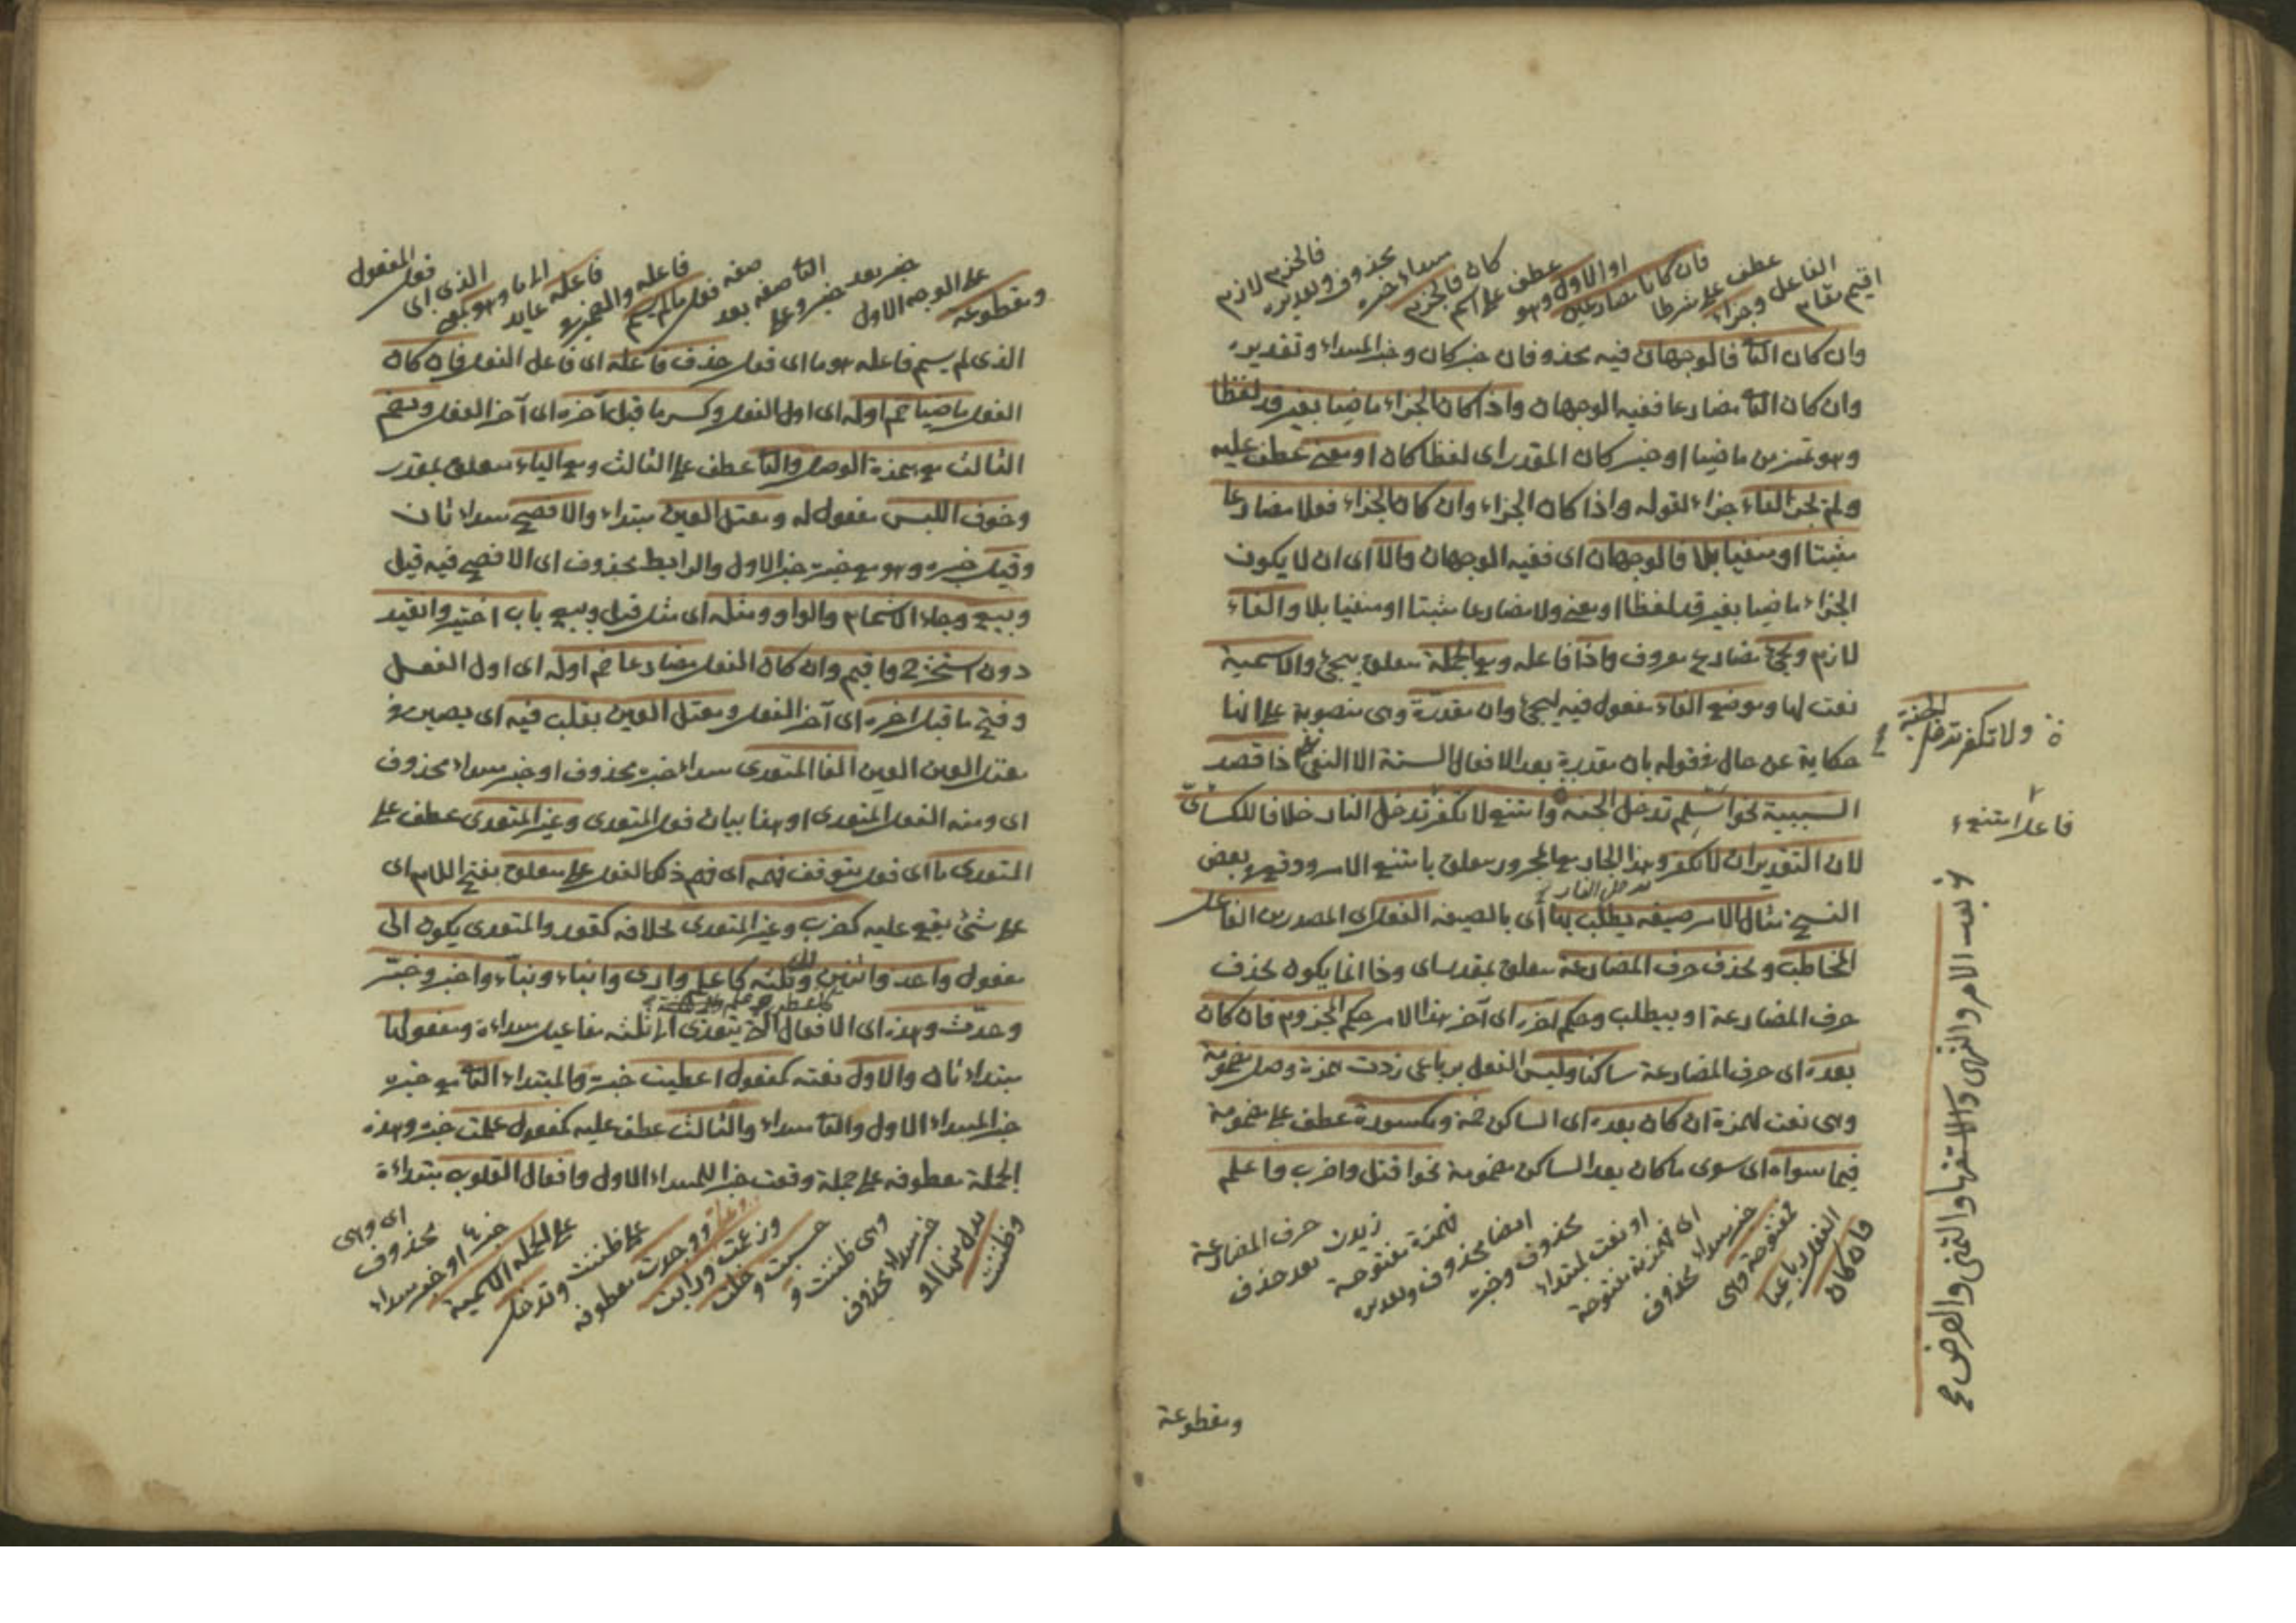 اقيم مقام
الفاعل وجزاء
عطف على شرطا
فان كانا مضارعين
او الاول وهو
عطف على اسم
كان فالجزم
مبتداء خبره
محذوف وتقديره
فالجزم لازم
وان كان الثانى فالوجهان فيه محذوفان خبر كان وخبر المبتداء وتقديره
وان كان الثانى مضارعا ففيه الوجهان واذا كان الجزاء ماضيا بغير قد لفظا
وهو تميز من ماضيا او خبر كان المقدر اى لفظا كان او معنى عطف عليه
ولم يجز الفاء جزاء لقوله واذا كان الجزاء وان كان الجزاء فعلا مضارعا
مثبتا او منفيا بلا فالوجهان اى ففيه الوجهان والا اى ان لا يكون
الجزاء ماضيا بغير قد لفظا او معنى ولا مضارعا مثبتا او منفيا بلا والفاء
لازم ويجئ مضارع معروف واذا فاعله ومع الجملة متعلق بيجئ والاسمية
نعت لها وموضع الفاء مفعول فيه ليجئ وان مقدرة وهى منصوبة على انها
حكاية عن حال فقوله بان مقدرة بعد الافعال الستة الا النفى اذا قصد
السببية نحو اسلم تدخل الجنة وامتنع لا تكفر تدخل النار خلافا للكسائى
لان التقدير ان لا تكفر وهذا الجار مع المجرور متعلق بامتنع الامر ووقع فى بعض
تدخل النار
النسخ مثال الامر صيغة يطلب بها اى بالصيغة الفعل اى المصدر من الفاعل
المخاطب وبحذف حرف المضارعة متعلق بمقدر اى وهذا انما يكون بحذف
حرف المضارعة او بيطلب وحكم آخره اى آخر هذا الامر حكم المجزوم فان كان
بعده اى حرف المضارعة ساكنا وليس الفعل برباعى زدت همزة وصل مضمومة
وهى نعت لهمزة ان كان بعده اى الساكن ضمة ومكسورة عطف على مضمومة
فيما سواه اى سوى ما كان بعد الساكن مضمومة نحو اقتل واضرب واعلم
فان كان
الفعل رباعيا
فمفتوحة وهى
خبر مبتداء محذوف
اى فهمزته مفتوحة
او نعت لمبتداء
محذوف وخبره
ايضا محذوف وتقديره
فهمزة مفتوحة
زيدت بعد حذف
حرف المضارعة
ومقطوعة
ولا تكفر تدخل الجنة
فاعل امتنع
بعد الامر والنهى والاستفهام والتمنى والعرض
ومقطوعة
على الوجه الاول
خبر بعد خبر وعلى
الثانى صفة بعد
صفة فعل ما لم يسم
فاعله والضمير فى
فاعله عايد
الى ما وهو بمعنى
الذى اى
فعل المفعول
الذى لم يسم فاعله هو ما اى فعل حذف فاعله اى فاعل الفعل فان كان
الفعل ماضيا ضم اوله اى اول الفعل وكسر ما قبل آخره اى آخر الفعل ويضم
الثالث مع همزة الوصل والثانى عطف على الثالث ومع التاء متعلق بمقدر
وخوف اللبس مفعول له ومعتل العين مبتداء والافصح مبتداء ثان
وقيل خبره وهو مع خبره خبر الاول والرابط محذوف اى الافصح فيه قيل
وبيع وجاء الاشمام والواو ومثله اى مثل قيل وبيع باب اختير وانقيد
دون استخير واقيم وان كان الفعل مضارعا ضم اوله اى اول الفعل
وفتح ما قبل اخره اى آخر الفعل ومعتل العين يقلب فيه اى يصير فى
معتل العين العين الفا المتعدى مبتداء خبره محذوف او خبر مبتداء محذوف
اى ومنه الفعل المتعدى او هذا بيان فعل المتعدى وغير المتعدى عطف على
المتعدى ما اى فعل يتوقف فهمه اى فهم ذلك الفعل على متعلق بفتح اللام اى
على شئ يقع عليه كضرب وغير المتعدى بخلافه كقعد والمتعدى يكون الى
مفعول واحد واثنين وثلثه كاعلم وارى وانباء ونباء واخبر وخبر
وحدث وهذه اى الافعال التى يتعدى الى ثلثه مفاعيل مبتداءة ومفعولها
مبتداء ثان والاول نعته كمفعول اعطيت خبره والمبتداء الثانى مع خبره
خبر المبتداء الاول والثانى مبتداء والثالث عطف عليه كمفعول علمت خبره وهذه
الجملة معطوفة على جملة وقعت خبرا للمبتداء الاول وافعال القلوب مبتداءة
وظننت
خبر مبتداء محذوف
وهى ظننت و
حسبت وخلت
وزعمت ورايت
ووجدت معطوفة
على ظننت وتدخل
على الجملة الاسمية
خبره او خبر مبتداء
محذوف
اى وهى